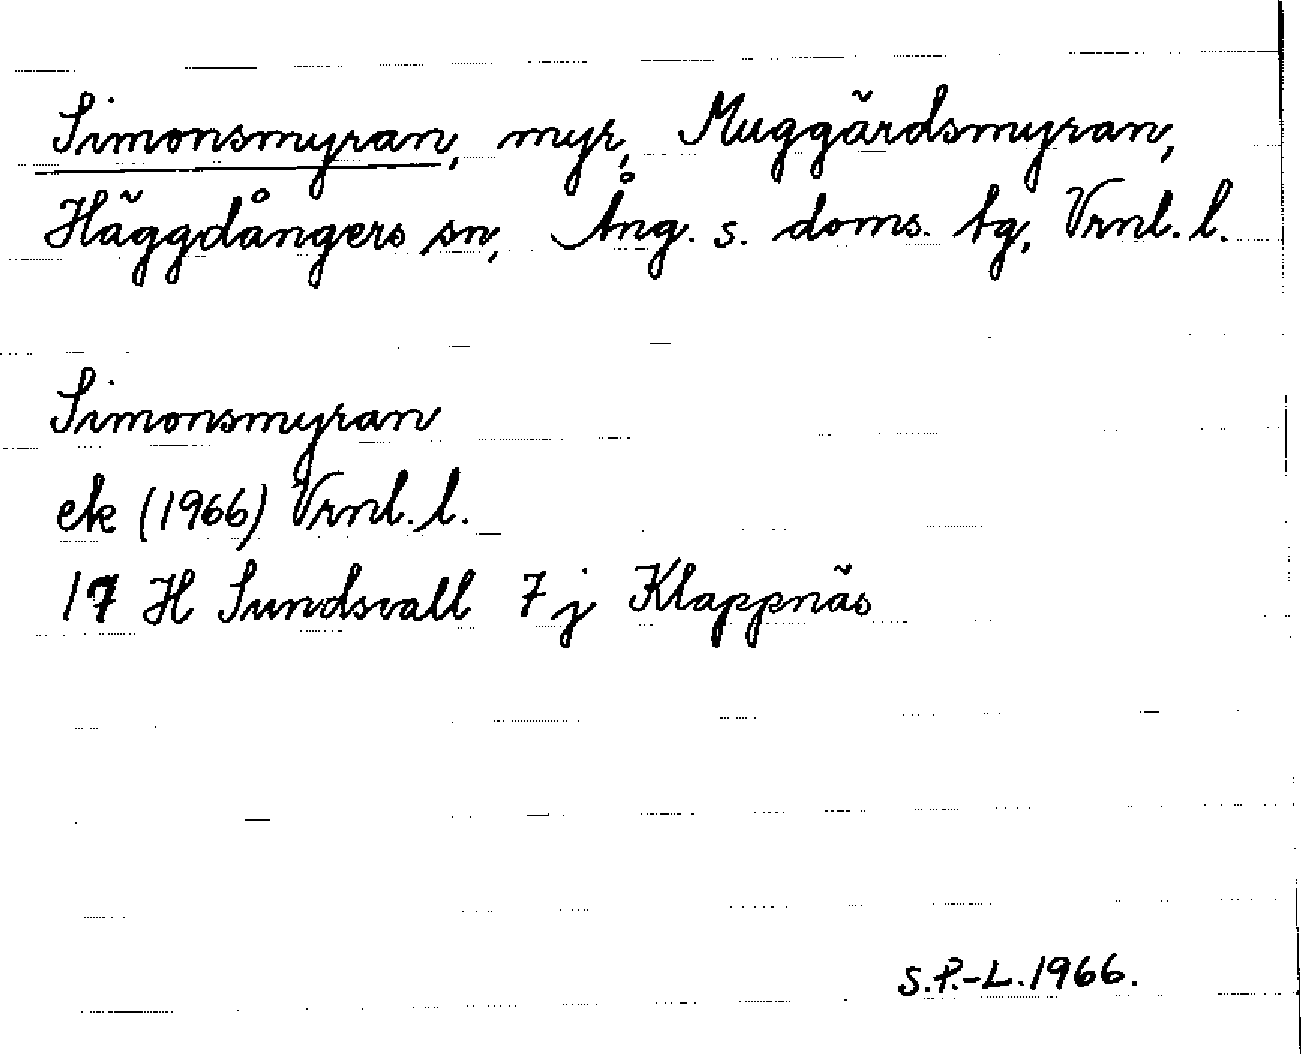 Simonsmyran, myr, Muggärdsmyran,
Häggdångers sn, Ång. s. doms. tg, Vrnl. l.
Simonsmyran
ek (1966) Vrnl. l.
17 H Sundsvall 7 j Klappnäs
S.P.-L. 1966.